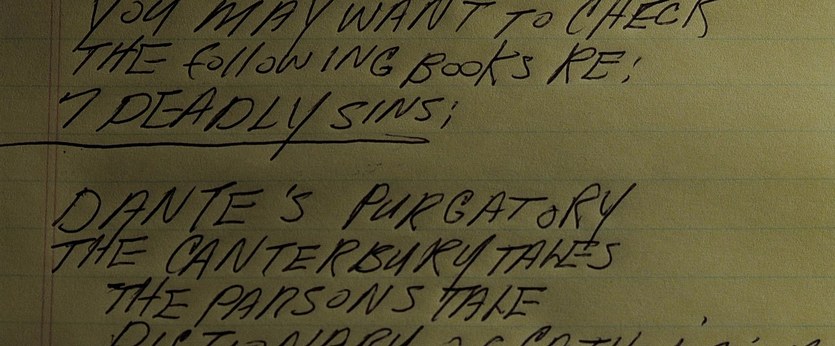 YOU MAY WANT TO CHECK
THE following BOOKS RE:
7 DEADLY SINS;
DANTE'S PURGATORY
THE CANTERBURY TALES
THE PARSONS TALE
DICTIONARY OF